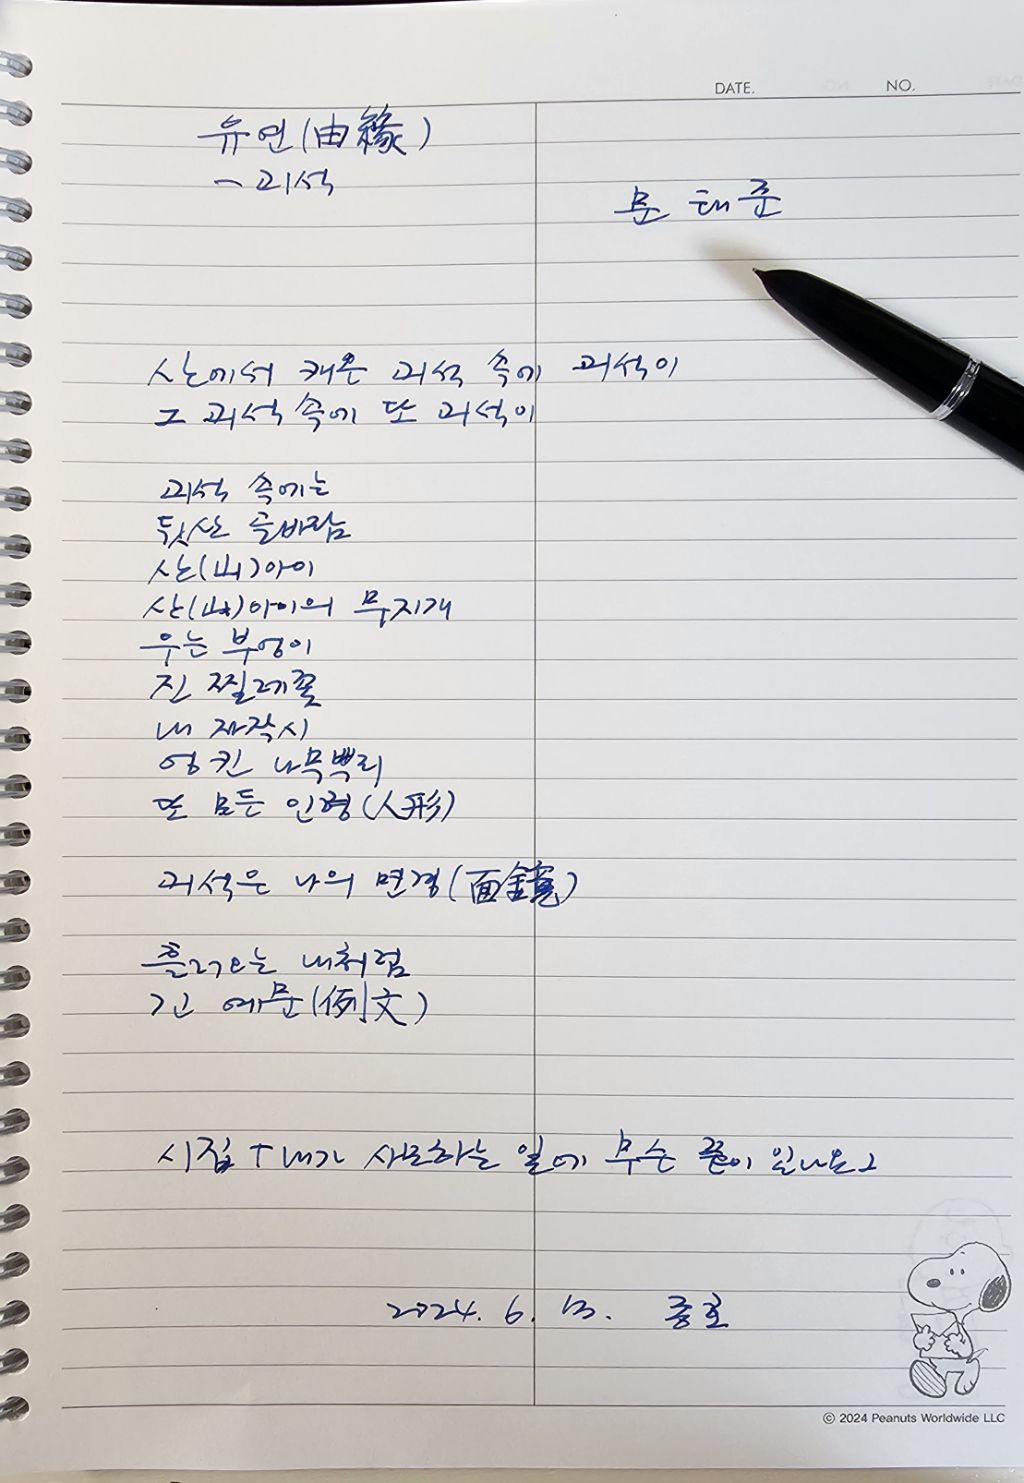 DATE. NO.
유연(由緣)
- 괴석
문태준
산에서 캐온 괴석 속에 괴석이
그 괴석 속에 또 괴석이
괴석 속에는
뒷산 골바람
산(山)아이
산(山)아이의 무지개
우는 부엉이
진 찔레꽃
내 자작시
엉킨 나무뿌리
또 모든 인형(人形)
괴석은 나의 면경(面鏡)
흘러오는 내처럼
긴 예문(例文)
시집 「내가 사모하는 일에 무슨 끝이 있나요」
2024. 6. 13.
© 2024 Peanuts Worldwide LLC